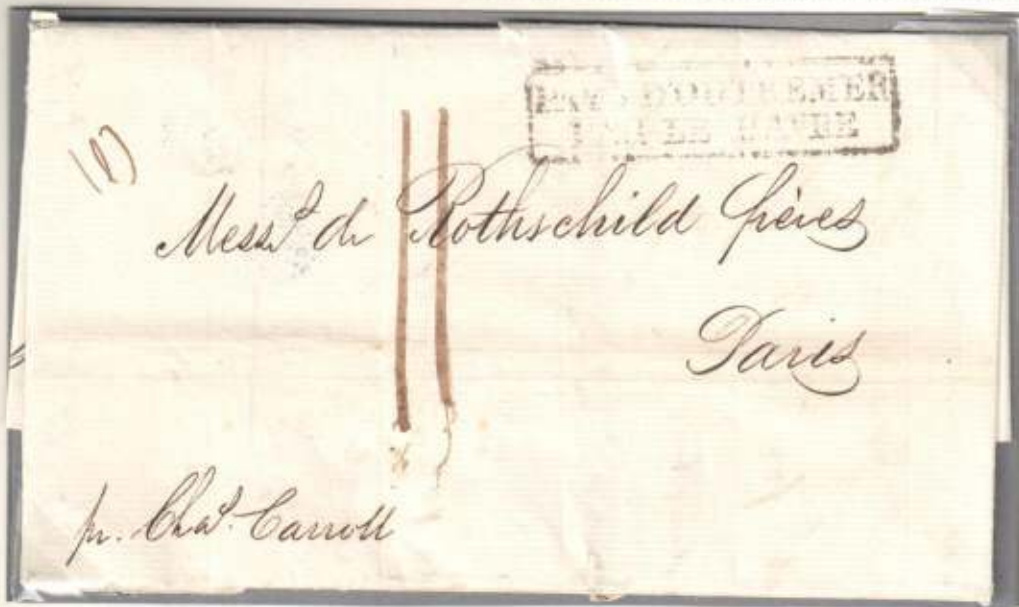 PAYS D'OUTREMER
PAR LE HAVRE
Mess.rs de Rothschild frères
Paris
pr. Chas. Carroll